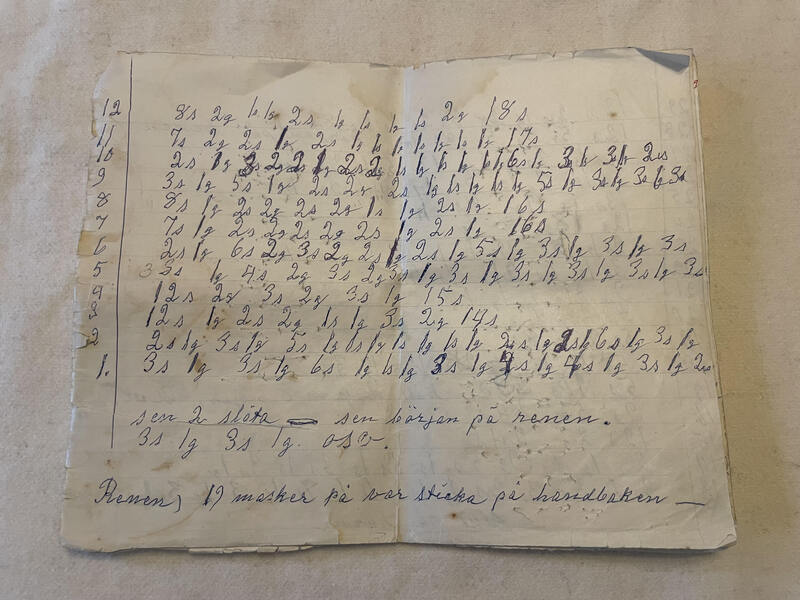 12 8s 2g 1s 1g 2s 1g 1s 1g 1s 2g 18s
11 7s 2g 2s 1g 2s 1g 1s 1g 1s 1g 1s 1g 17s
10 2s 1g 3s 2g 2s 1g 2s 2g 1s 1g 1s 1g 1s 1g 6s 1g 3s 1g 3s 1g 2s
9 3s 1g 5s 1g 2s 2g 2s 1g 1s 1g 1s 1g 5s 1g 3s 1g 3s 1g 3s
8 8s 1g 2s 2g 2s 2g 1s 1g 2s 1g 16s
7 7s 1g 2s 2g 2s 2g 2s 1g 2s 1g 16s
6 2s 1g 6s 2g 3s 2g 2s 1g 2s 1g 5s 1g 3s 1g 3s 1g 3s
5 3s 1g 4s 2g 3s 2g 3s 1g 3s 1g 3s 1g 3s 1g 3s 1g 3s
4 12s 2g 3s 2g 3s 1g 15s
3 12s 1g 2s 2g 1s 1g 3s 2g 14s
2 2s 1g 3s 1g 5s 1g 1s 1g 1s 1g 1s 1g 2s 1g 2s 1g 6s 1g 3s 1g
1. 3s 1g 3s 1g 6s 1g 1s 1g 3s 1g 4s 1g 4s 1g 3s 1g 2s
sen 2 slöta sen början på renen.
3s 1g 3s 1g. osv.
Renen) 19 masker på var sticka på handbaken —